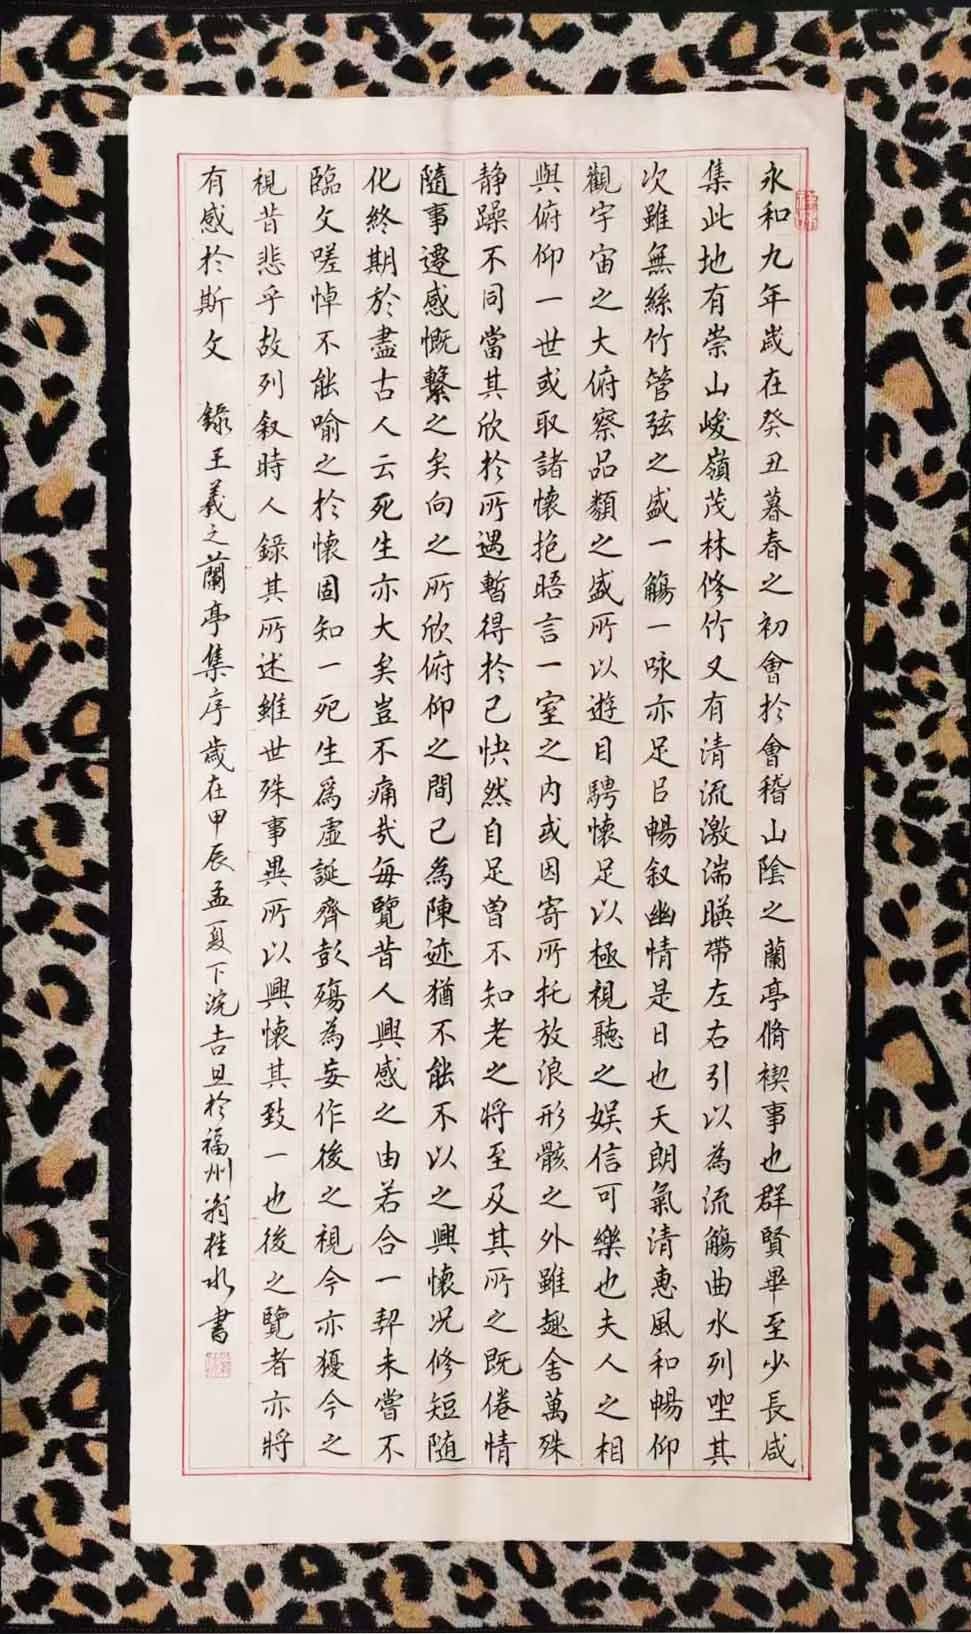 永和九年歲在癸丑暮春之初會於會稽山陰之蘭亭脩禊事也群賢畢至少長咸
集此地有崇山峻嶺茂林修竹又有清流激湍暎帶左右引以為流觴曲水列坐其
次雖無絲竹管弦之盛一觴一咏亦足㠯暢叙幽情是日也天朗氣清惠風和暢仰
觀宇宙之大俯察品類之盛所以遊目騁懷足以極視聽之娛信可樂也夫人之相
與俯仰一世或取諸懷抱晤言一室之內或因寄所托放浪形骸之外雖趣舍萬殊
静躁不同當其欣於所遇暫得於己快然自足曾不知老之將至及其所之既倦情
隨事遷感慨繫之矣向之所欣俯仰之間已為陳迹猶不能不以之興懷况修短随
化終期於盡古人云死生亦大矣豈不痛哉每覽昔人興感之由若合一契未嘗不
臨文嗟悼不能喻之於懷固知一死生爲虛誕齊彭殤為妄作後之視今亦猶今之
視昔悲乎故列叙時人錄其所述雖世殊事異所以興懷其致一也後之覽者亦將
有感於斯文 錄王羲之蘭亭集序歲在甲辰孟夏下浣吉旦於福州翁桂水書